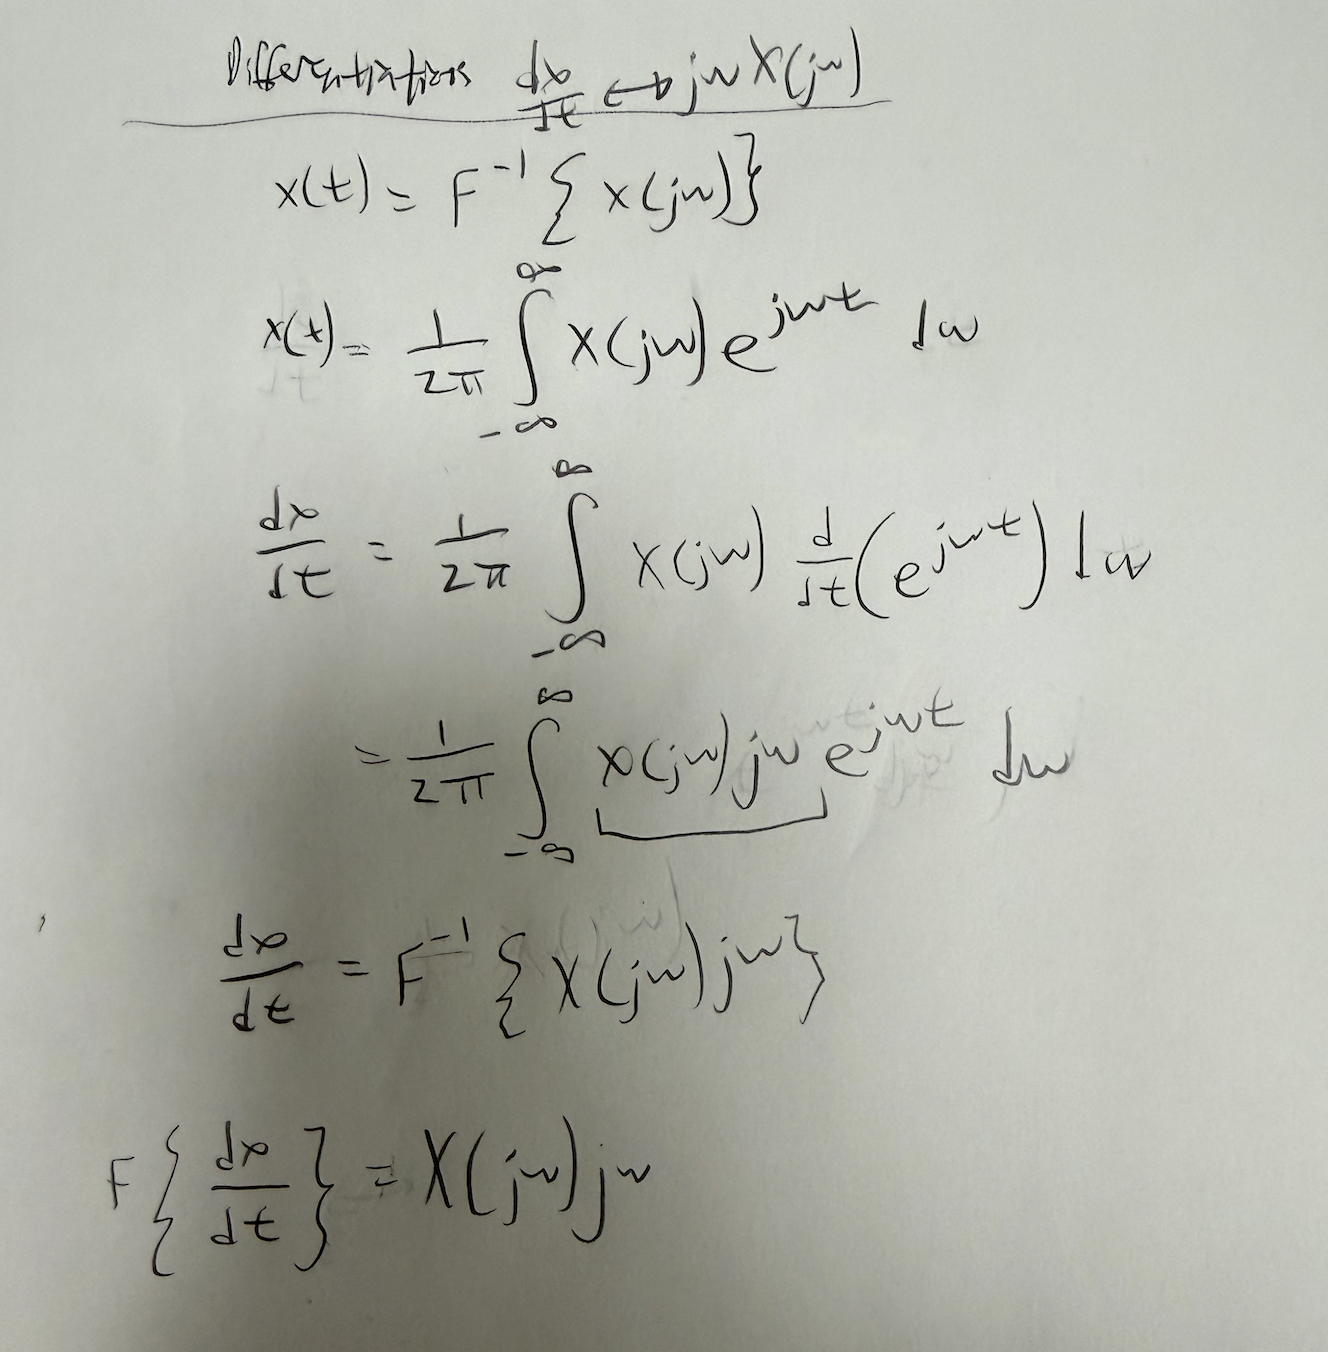 Differentiations dx/dt ↔ jω X(jω)
x(t) = F⁻¹ { X(jω) }
x(t) = 1/2π ∫_{-∞}^{∞} X(jω) e^{jωt} dω
dx/dt = 1/2π ∫_{-∞}^{∞} X(jω) d/dt (e^{jωt}) dω
= 1/2π ∫_{-∞}^{∞} X(jω) jω e^{jωt} dω
dx/dt = F⁻¹ { X(jω) jω }
F { dx/dt } = X(jω) jω